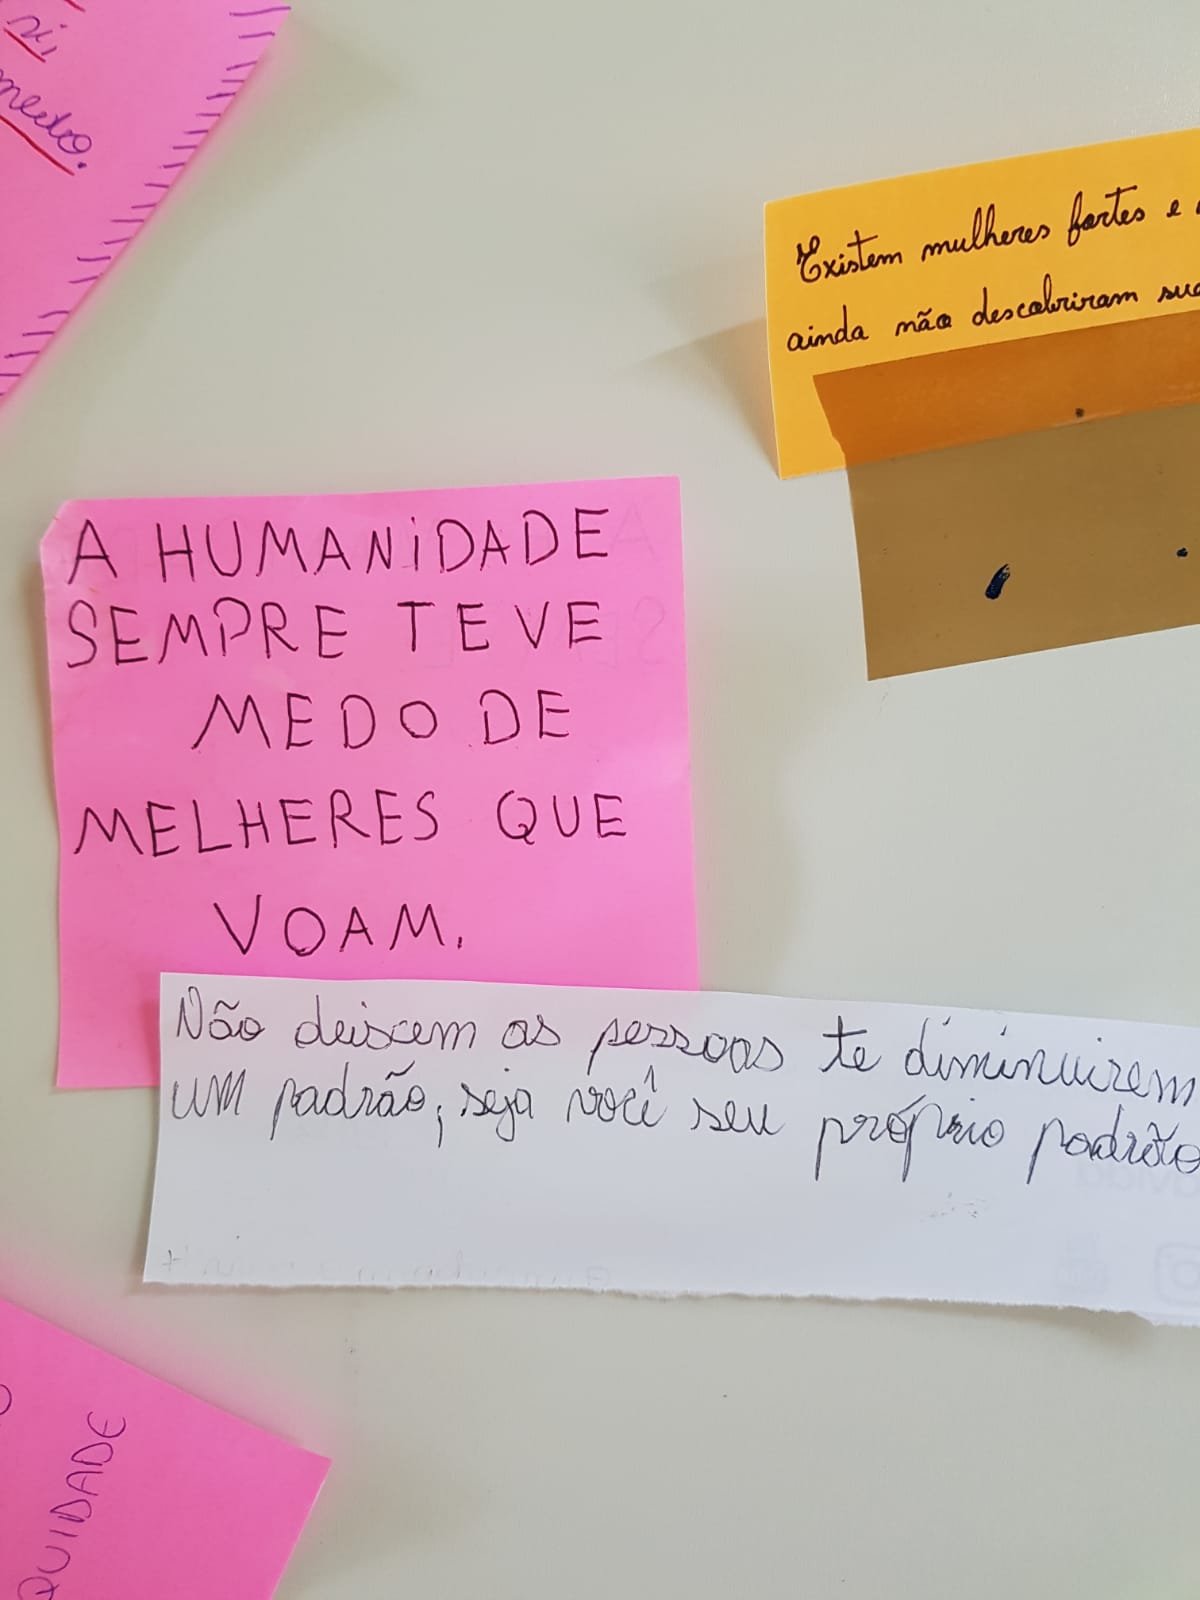 si,
medo.
Existem mulheres fortes e
ainda não descobriram sua
A HUMANiDADE
SEMPRE TEVE
MEDO DE
MELHERES QUE
VOAM.
Não deiscem as pessoas te diminuirem
um padrão, seja você seu próprio padrão
QUIDADE